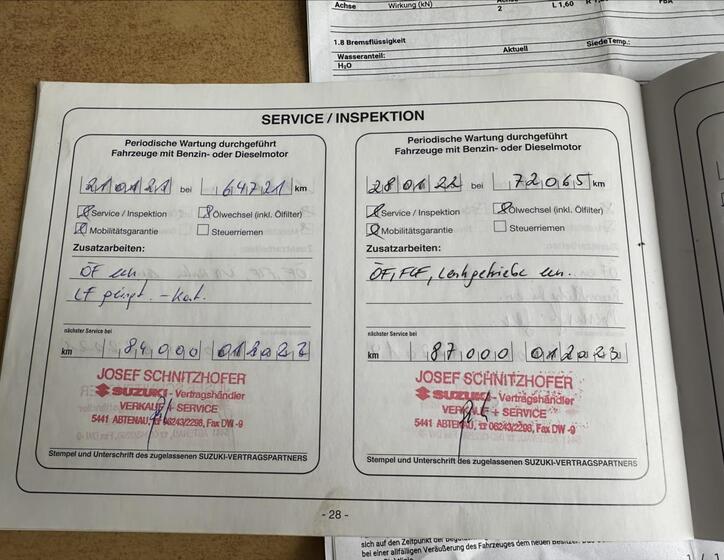 Achse
Wirkung (kN)
2
L 1,60
1.8 Bremsflüssigkeit
Wasseranteil:
Aktuell
SiedeTemp.:
H₂O
SERVICE / INSPEKTION
Periodische Wartung durchgeführt
Fahrzeuge mit Benzin- oder Dieselmotor
210121 bei 64721 km
Service / Inspektion
Ölwechsel (inkl. Ölfilter)
Mobilitätsgarantie
Steuerriemen
Zusatzarbeiten:
ÖF
LF
nächster Service bei
km 84000 012022
JOSEF SCHNITZHOFER
SUZUKI - Vertragshändler
VERKAUF + SERVICE
5441 ABTENAU, 06243/2298, Fax DW -9
Stempel und Unterschrift des zugelassenen SUZUKI-VERTRAGSPARTNERS
Periodische Wartung durchgeführt
Fahrzeuge mit Benzin- oder Dieselmotor
280122 bei 72065 km
Service / Inspektion
Ölwechsel (inkl. Ölfilter)
Mobilitätsgarantie
Steuerriemen
Zusatzarbeiten:
ÖF,
nächster Service bei
km 87000 012023
JOSEF SCHNITZHOFER
SUZUKI - Vertragshändler
VERKAUF + SERVICE
5441 ABTENAU, 06243/2298, Fax DW -9
Stempel und Unterschrift des zugelassenen SUZUKI-VERTRAGSPARTNERS
- 28 -
sich auf den Zeitpunkt der
bei einer allfälligen Veräußerung des Fahrzeuges dem neuen